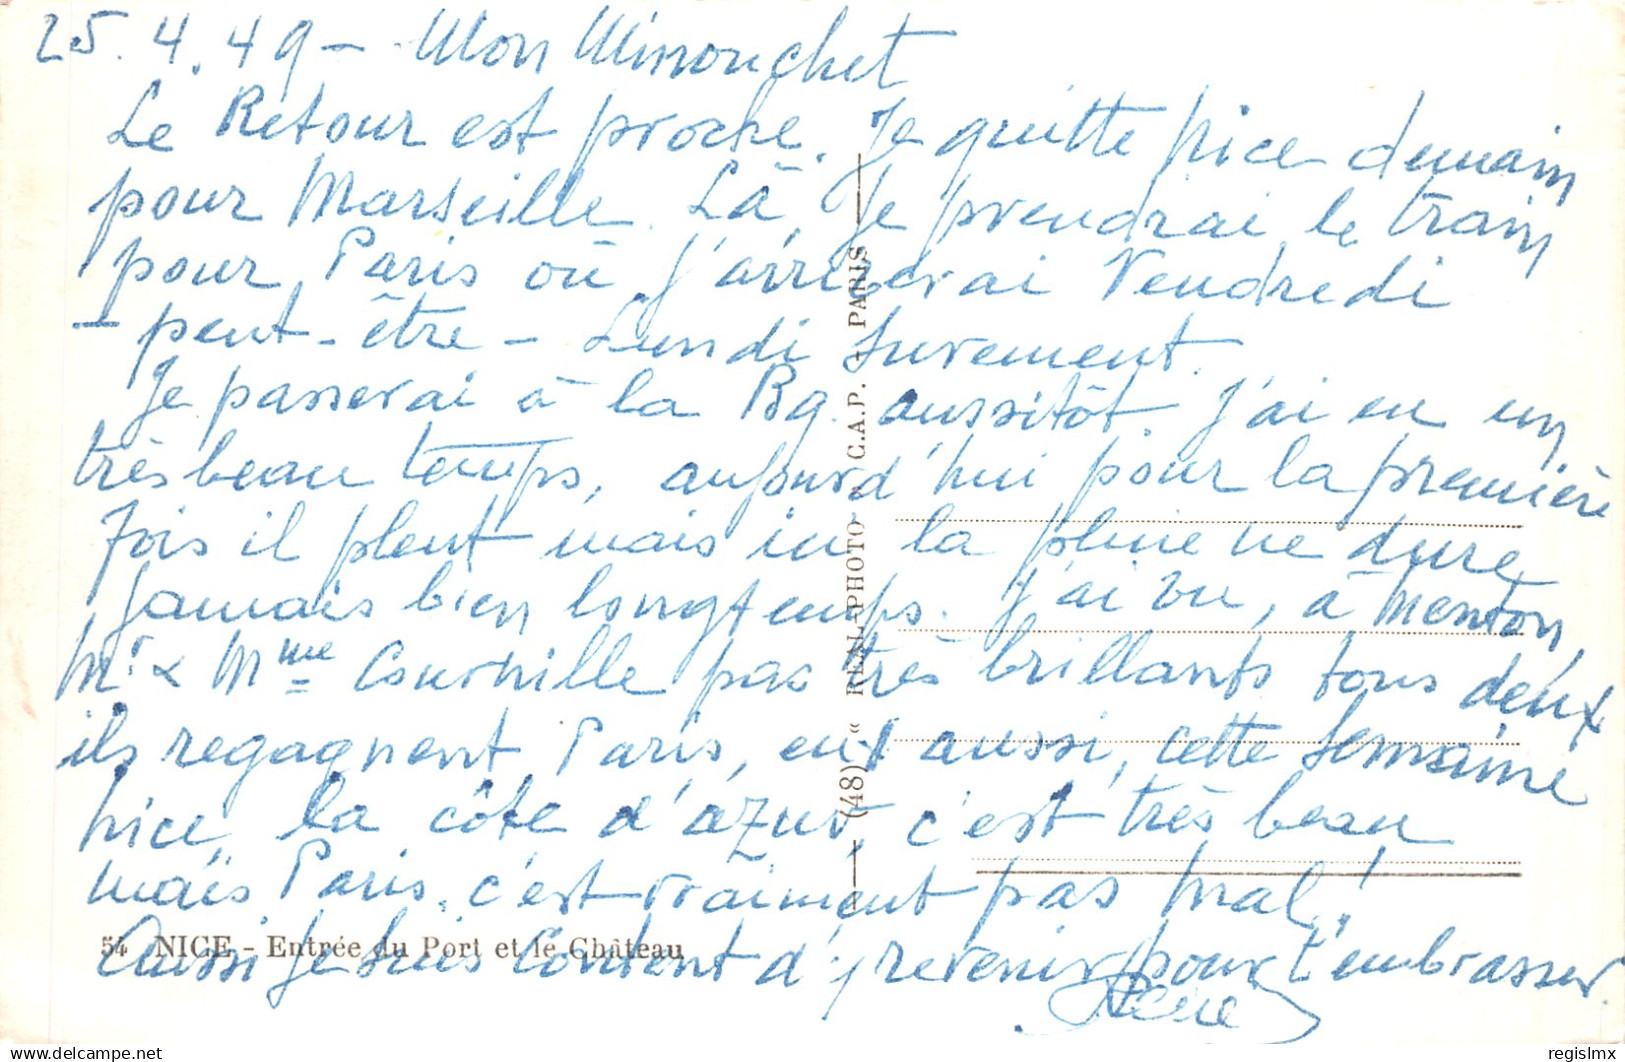 25.4.49 - Mon Minouchet
Le Retour est proche. Je quitte Nice demain
pour Marseille. Là, Je prendrai le train
pour Paris où J'arriverai Vendredi
- peut-être - Lundi Surement.
Je passerai à la Bq. aussitôt. J'ai eu un
très beau temps, aujourd'hui pour la première
fois il pleut mais ici la pluie ne dure
Jamais bien longtemps. J'ai vu, à Menton,
Mr & Mme Courville pas très brillants tous deux
ils regagnent Paris, eux aussi, cette Semaine
Nice, la côte d'azur, c'est très beau
mais Paris, c'est vraiment pas mal!
Aussi Je Suis Content d'y revenir pour t'embrasser.
54 NICE - Entrée du Port et le Château
(48) « REAL-PHOTO » C.A.P. - PARIS
delcampe.net
regislmx